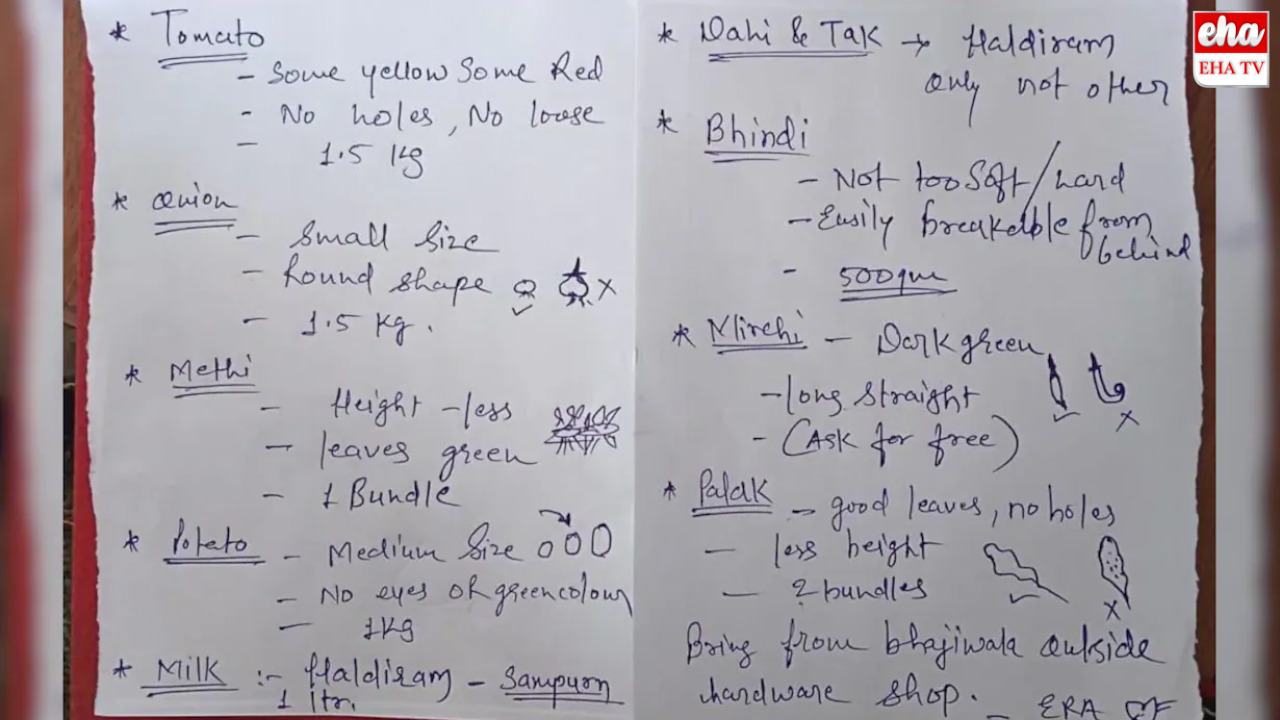 * Tomato
- Some yellow Some Red
- No holes, No loose
- 1.5 Kg
* onion
- Small Size
- Round shape
- 1.5 Kg.
* Methi
- Height - less
- leaves green
- 1 Bundle
* Potato - Medium Size
- No eyes or green colour
- 1Kg
* Milk :- Haldiram - Sampurn
1 ltr.
* Dahi & Tak → Haldiram
only not other
* Bhindi
- Not too Soft/hard
- Easily breakable from
behind
- 500gm
* Mirchi - Dark green
- long straight
- (Ask for free)
* Palak - good leaves, no holes
- less height
- 2 bundles
Bring from bhajiwala outside
hardware shop.
- ERA OF
eha
EHA TV